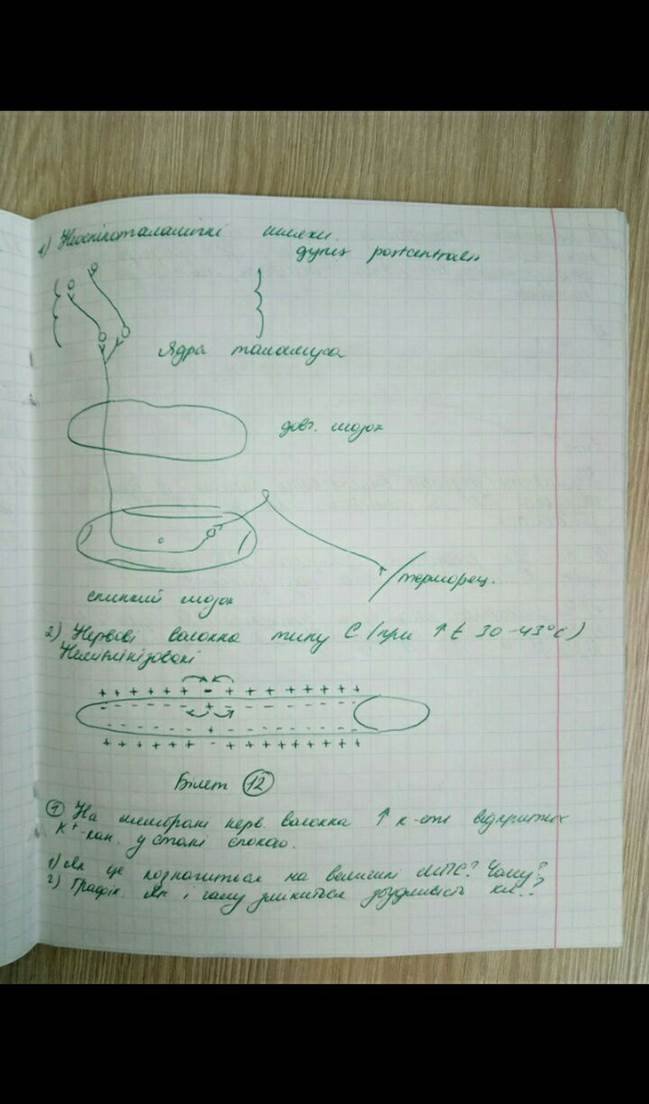 1) Неоспіноталамічні шляхи.
gyrus postcentralis
Ядра таламуса
довг. мозок
терморец.
спинний мозок
2) Нервові волокна типу С (при ↑ t 30-43°C)
Немієлінізовані
+ + + + + + - + + + + + + + +
- - - - - - + - - - - - - -
- - - - - - + - - - - - - -
+ + + + + + - + + + + + + + +
Білет 12
① На мембрані нерв. волокна ↑ к-сть відкритих
K⁺-кан. у стані спокою.
1) Як це позначиться на величині МПС? Чому?
2) Графік. Як і чому зміниться збудливість кл.?